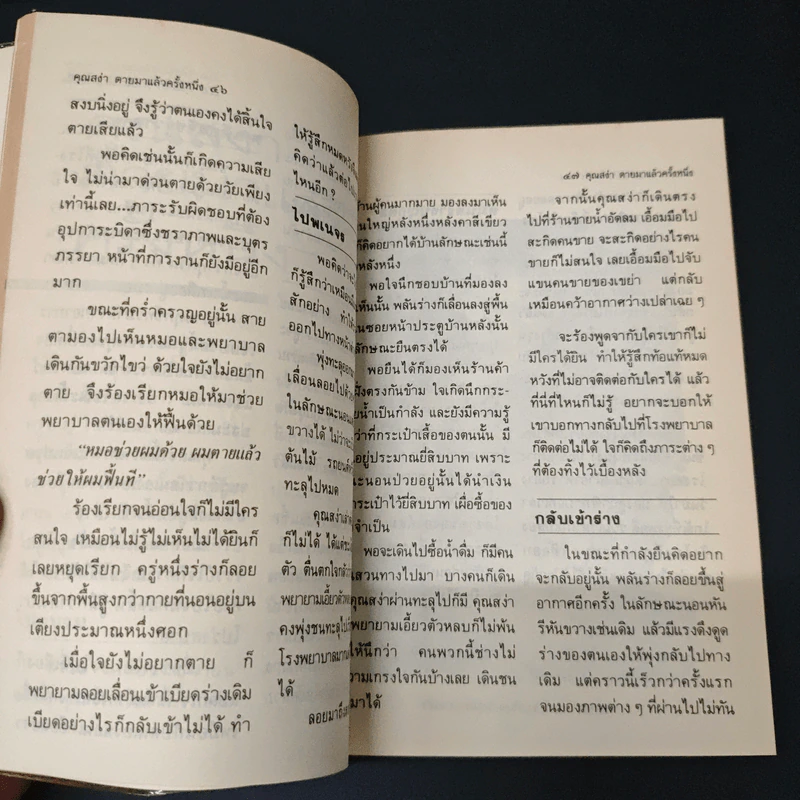 คุณสง่า ตายมาแล้วครั้งหนึ่ง ๔๖
สงบนิ่งอยู่ จึงรู้ว่าตนเองคงได้สิ้นใจ
ตายเสียแล้ว
พอคิดเช่นนั้นก็เกิดความเสีย
ใจ ไม่น่ามาด่วนตายด้วยวัยเพียง
เท่านี้เลย...ภาระรับผิดชอบที่ต้อง
อุปการะบิดาซึ่งชราภาพและบุตร
ภรรยา หน้าที่การงานก็ยังมีอยู่อีก
มาก
ขณะที่คร่ำครวญอยู่นั้น สาย
ตามองไปเห็นหมอและพยาบาล
เดินกันขวักไขว่ ด้วยใจยังไม่อยาก
ตาย จึงร้องเรียกหมอให้มาช่วย
พยาบาลตนเองให้ฟื้นด้วย
“หมอช่วยผมด้วย ผมตายแล้ว
ช่วยให้ผมฟื้นที”
ร้องเรียกจนอ่อนใจก็ไม่มีใคร
สนใจ เหมือนไม่รู้ไม่เห็นไม่ได้ยินก็
เลยหยุดเรียก ครู่หนึ่งร่างก็ลอย
ขึ้นจากพื้นสูงกว่ากายที่นอนอยู่บน
เตียงประมาณหนึ่งศอก
เมื่อใจยังไม่อยากตาย ก็
พยายามลอยเลื่อนเข้าเบียดร่างเดิม
เบียดอย่างไรก็กลับเข้าไม่ได้ ทำ
ให้รู้สึกหมดหวัง
คิดว่าแล้วต่อไป
ไหนอีก ?
ไปพเนจร
พอคิดว่า
ก็รู้สึกว่าเหมือน
สักอย่าง ทำให้
ออกไปทาง
พุ่งทะลุออก
เลื่อนลอยไป
ในลักษณะนอน
ขวางได้ ไม่ว่าจะ
ต้นไม้ รถยนต์
ทะลุไปหมด
คุณสง่าเล่า
ก็ไม่ได้ ได้แต่
ตัว ตื่นตกใจกลัว
พยายามเอี้ยวตัว
คงพุ่งชนทะลุไป
โรงพยาบาล
ได้
ลอยมาถึง
๔๗ คุณสง่า ตายมาแล้วครั้งหนึ่ง
ผู้คนมากมาย มองลงมาเห็น
ใหญ่หลังหนึ่งหลังคาสีเขียว
ก็คิดอยากได้บ้านลักษณะเช่นนี้
หลังหนึ่ง
พอใจนึกชอบบ้านที่มองลง
เห็นนั้น พลันร่างก็เลื่อนลงสู่พื้น
ซอยหน้าประตูบ้านหลังนั้น
ลักษณะยืนตรงได้
พอยืนได้ก็มองเห็นร้านค้า
ฝั่งตรงกันข้าม ใจเกิดนึกกระ-
น้ำเป็นกำลัง และยังมีความรู้
ว่าที่กระเป๋าเสื้อของตนนั้น มี
อยู่ประมาณยี่สิบบาท เพราะ
นอนป่วยอยู่นั้นได้นำเงิน
กระเป๋าไว้ยี่สิบบาท เผื่อซื้อของ
จำเป็น
พอจะเดินไปซื้อน้ำดื่ม ก็มีคน
สวนทางไปมา บางคนก็เดิน
คุณสง่าผ่านทะลุไปก็มี คุณสง่า
พยายามเอี้ยวตัวหลบก็ไม่พ้น
ให้นึกว่า คนพวกนี้ช่างไม่
ความเกรงใจกันบ้างเลย เดินชน
มาได้
จากนั้นคุณสง่าก็เดินตรง
ไปที่ร้านขายน้ำอัดลม เอื้อมมือไป
สะกิดคนขาย จะสะกิดอย่างไรคน
ขายก็ไม่สนใจ เลยเอื้อมมือไปจับ
แขนคนขายของเขย่า แต่กลับ
เหมือนคว้าอากาศว่างเปล่าเฉย ๆ
จะร้องพูดจากับใครเขาก็ไม่
มีใครได้ยิน ทำให้รู้สึกท้อแท้หมด
หวังที่ไม่อาจติดต่อกับใครได้ แล้ว
ที่นี่ที่ไหนก็ไม่รู้ อยากจะบอกให้
เขาบอกทางกลับไปที่โรงพยาบาล
ก็ติดต่อไม่ได้ ใจก็คิดถึงภาระต่าง ๆ
ที่ต้องทิ้งไว้เบื้องหลัง
กลับเข้าร่าง
ในขณะที่กำลังยืนคิดอยาก
จะกลับอยู่นั้น พลันร่างก็ลอยขึ้นสู่
อากาศอีกครั้ง ในลักษณะนอนหัน
รีหันขวางเช่นเดิม แล้วมีแรงดึงดูด
ร่างของตนเองให้พุ่งกลับไปทาง
เดิม แต่คราวนี้เร็วกว่าครั้งแรก
จนมองภาพต่าง ๆ ที่ผ่านไปไม่ทัน